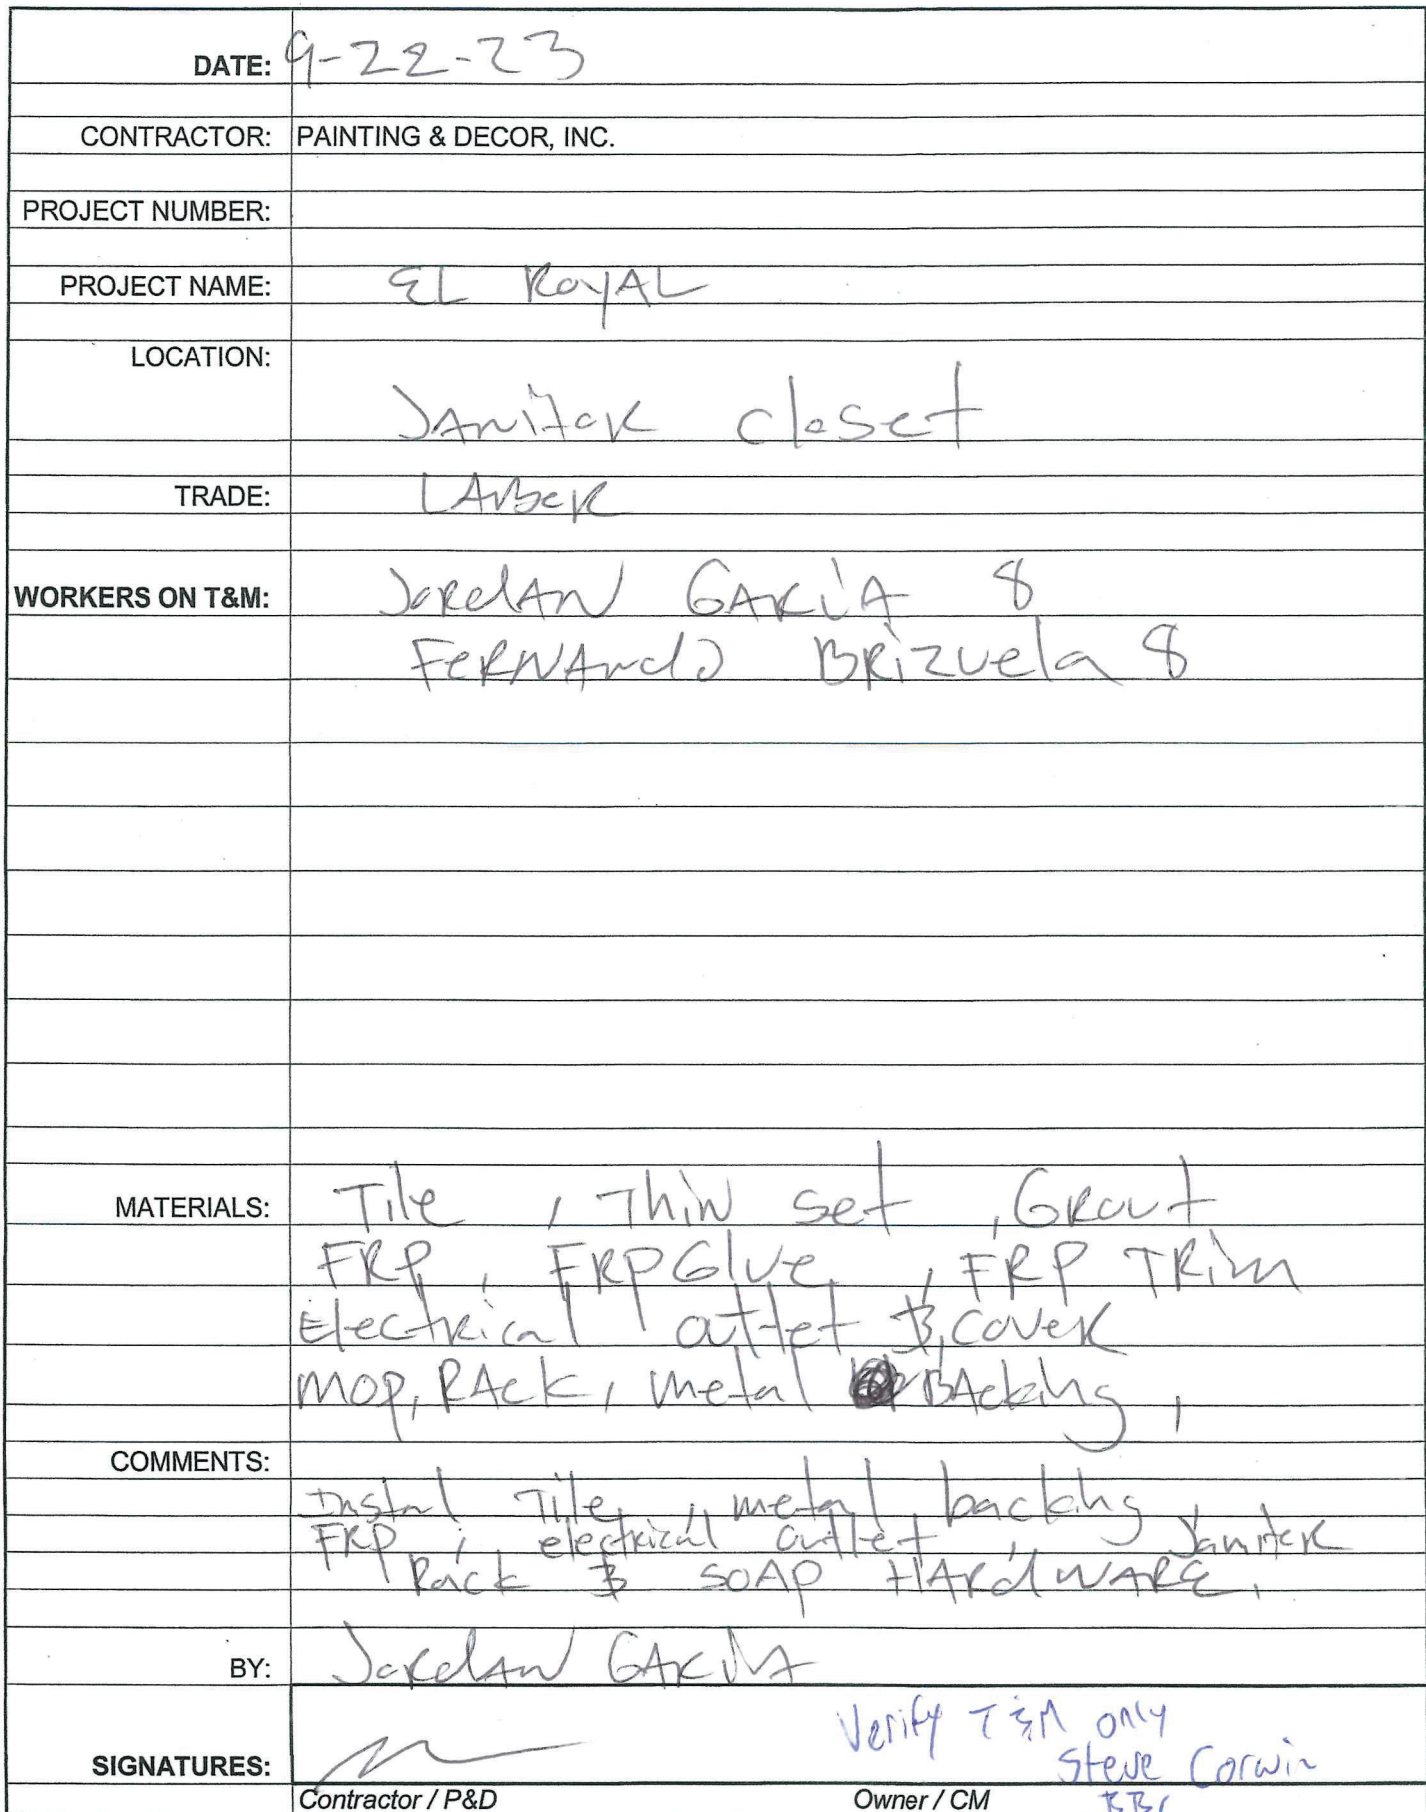 DATE: 9-22-23
CONTRACTOR: PAINTING & DECOR, INC.
PROJECT NUMBER:
PROJECT NAME: EL RoyAL
LOCATION:
JANitoR closet
TRADE: LABoR
WORKERS ON T&M: JoRdAN GARciA 8
FeRNANdO BRizuela 8
MATERIALS: Tile , Thin set , GRout
FRP , FRP Glue , FRP TRim
Electrical outlet & cover
mop, RAck, metal BAcking ,
COMMENTS:
Instal Tile , metal backing
FRP , electrical outlet , JanitoR
Rack & SOAP HARdWARE.
BY: JoRdAN GARciA
Verify T & M only
SIGNATURES: Steve Corwin
Contractor / P&D Owner / CM